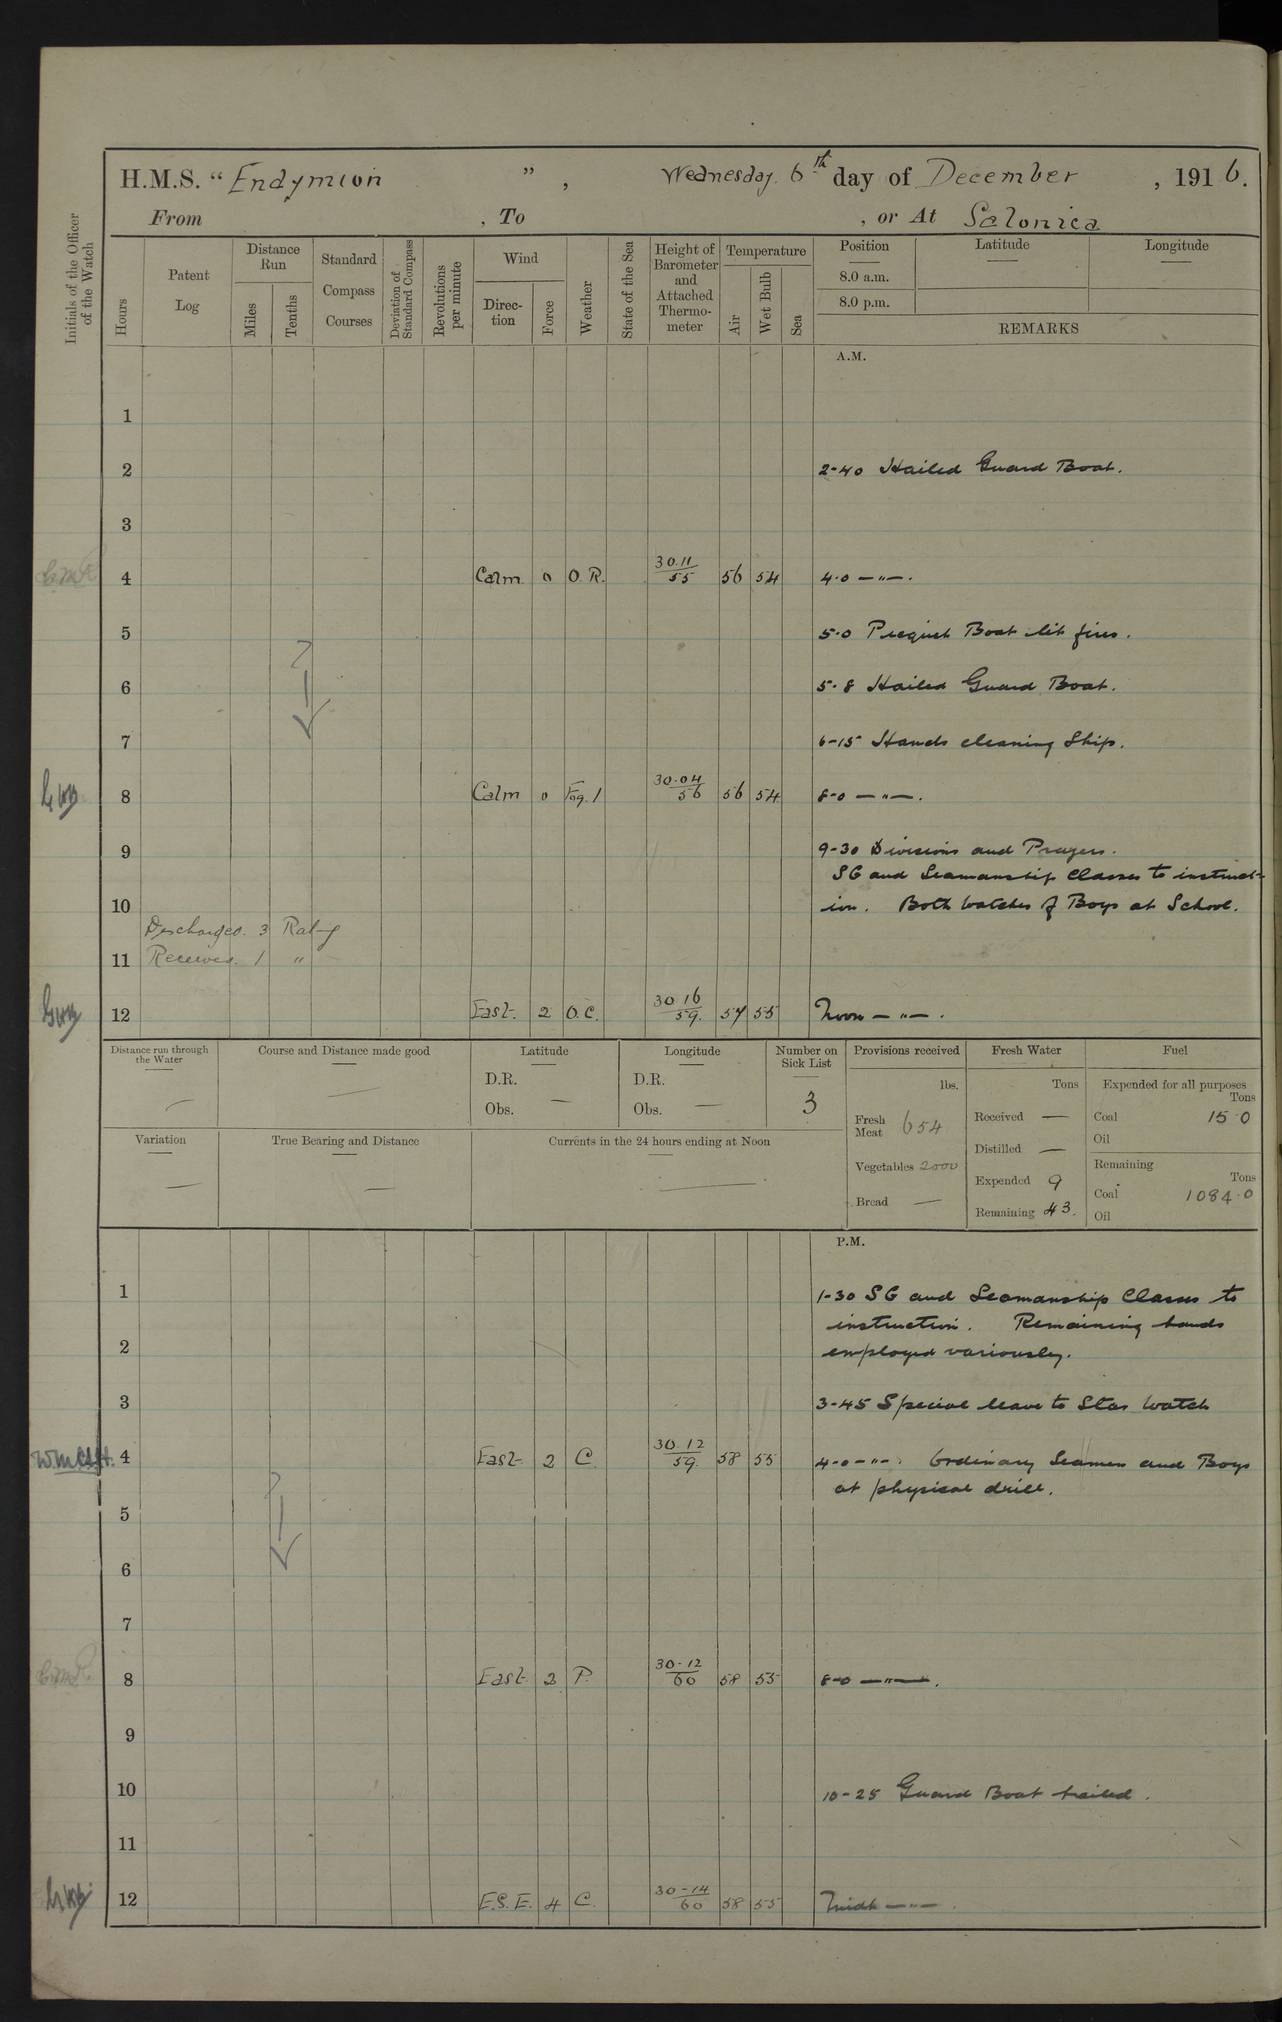 H.M.S. “Endymion ” , Wednesday 6th day of December , 1916.
From , To , or At Salonica
Initials of the Officer of the Watch
Hours
Patent Log
Distance Run
Miles
Tenths
Standard Compass Courses
Deviation of Standard Compass
Revolutions per minute
Wind
Direc-tion
Force
Weather
State of the Sea
Height of Barometer and Attached Thermo-meter
Temperature
Air
Wet Bulb
Sea
Position
8.0 a.m.
8.0 p.m.
Latitude
Longitude
REMARKS
A.M.
1
2 2-40 Hailed Guard Boat.
3
4 Calm 0 O.R. 30.11 / 55 56 54 4.0 — " — .
5 5.0 Picquet Boat lit fires.
6 5.8 Hailed Guard Boat.
7 6-15 Hands cleaning Ship.
8 Calm 0 Fog. 1 30.04 / 56 56 54 8-0 — " — .
9 9-30 Divisions and Prayers.
SG and Seamanship Classes to instruct-
10 ion. Both Watches of Boys at School.
Discharged. 3 Rat-g
11 Received. 1 "
12 East. 2 O.C. 30 16 / 59. 57 55 Noon — " — .
Distance run through the Water —
Course and Distance made good —
Latitude
D.R.
Obs. —
Longitude
D.R.
Obs. —
Number on Sick List
3
Provisions received
lbs.
Fresh Meat 654
Vegetables 2000
Bread —
Fresh Water
Tons
Received —
Distilled —
Expended 9
Remaining 43.
Fuel
Expended for all purposes
Tons
Coal 15.0
Oil
Remaining
Tons
Coal 1084.0
Oil
Variation —
True Bearing and Distance —
Currents in the 24 hours ending at Noon —
P.M.
1 1-30 SG and Seamanship Classes to
instruction. Remaining hands
2 employed variously.
3 3-45 Special leave to Star Watch
4 East 2 C. 30.12 / 59. 58 55 4-0 — " — . Ordinary Seamen and Boys
at physical drill.
5
6
7
8 East 2 P. 30-12 / 60 58 55 8-0 — " — .
9
10 10-25 Guard Boat hailed.
11
12 E.S.E. 4 C. 30-14 / 60 58 55 Midt — " — .